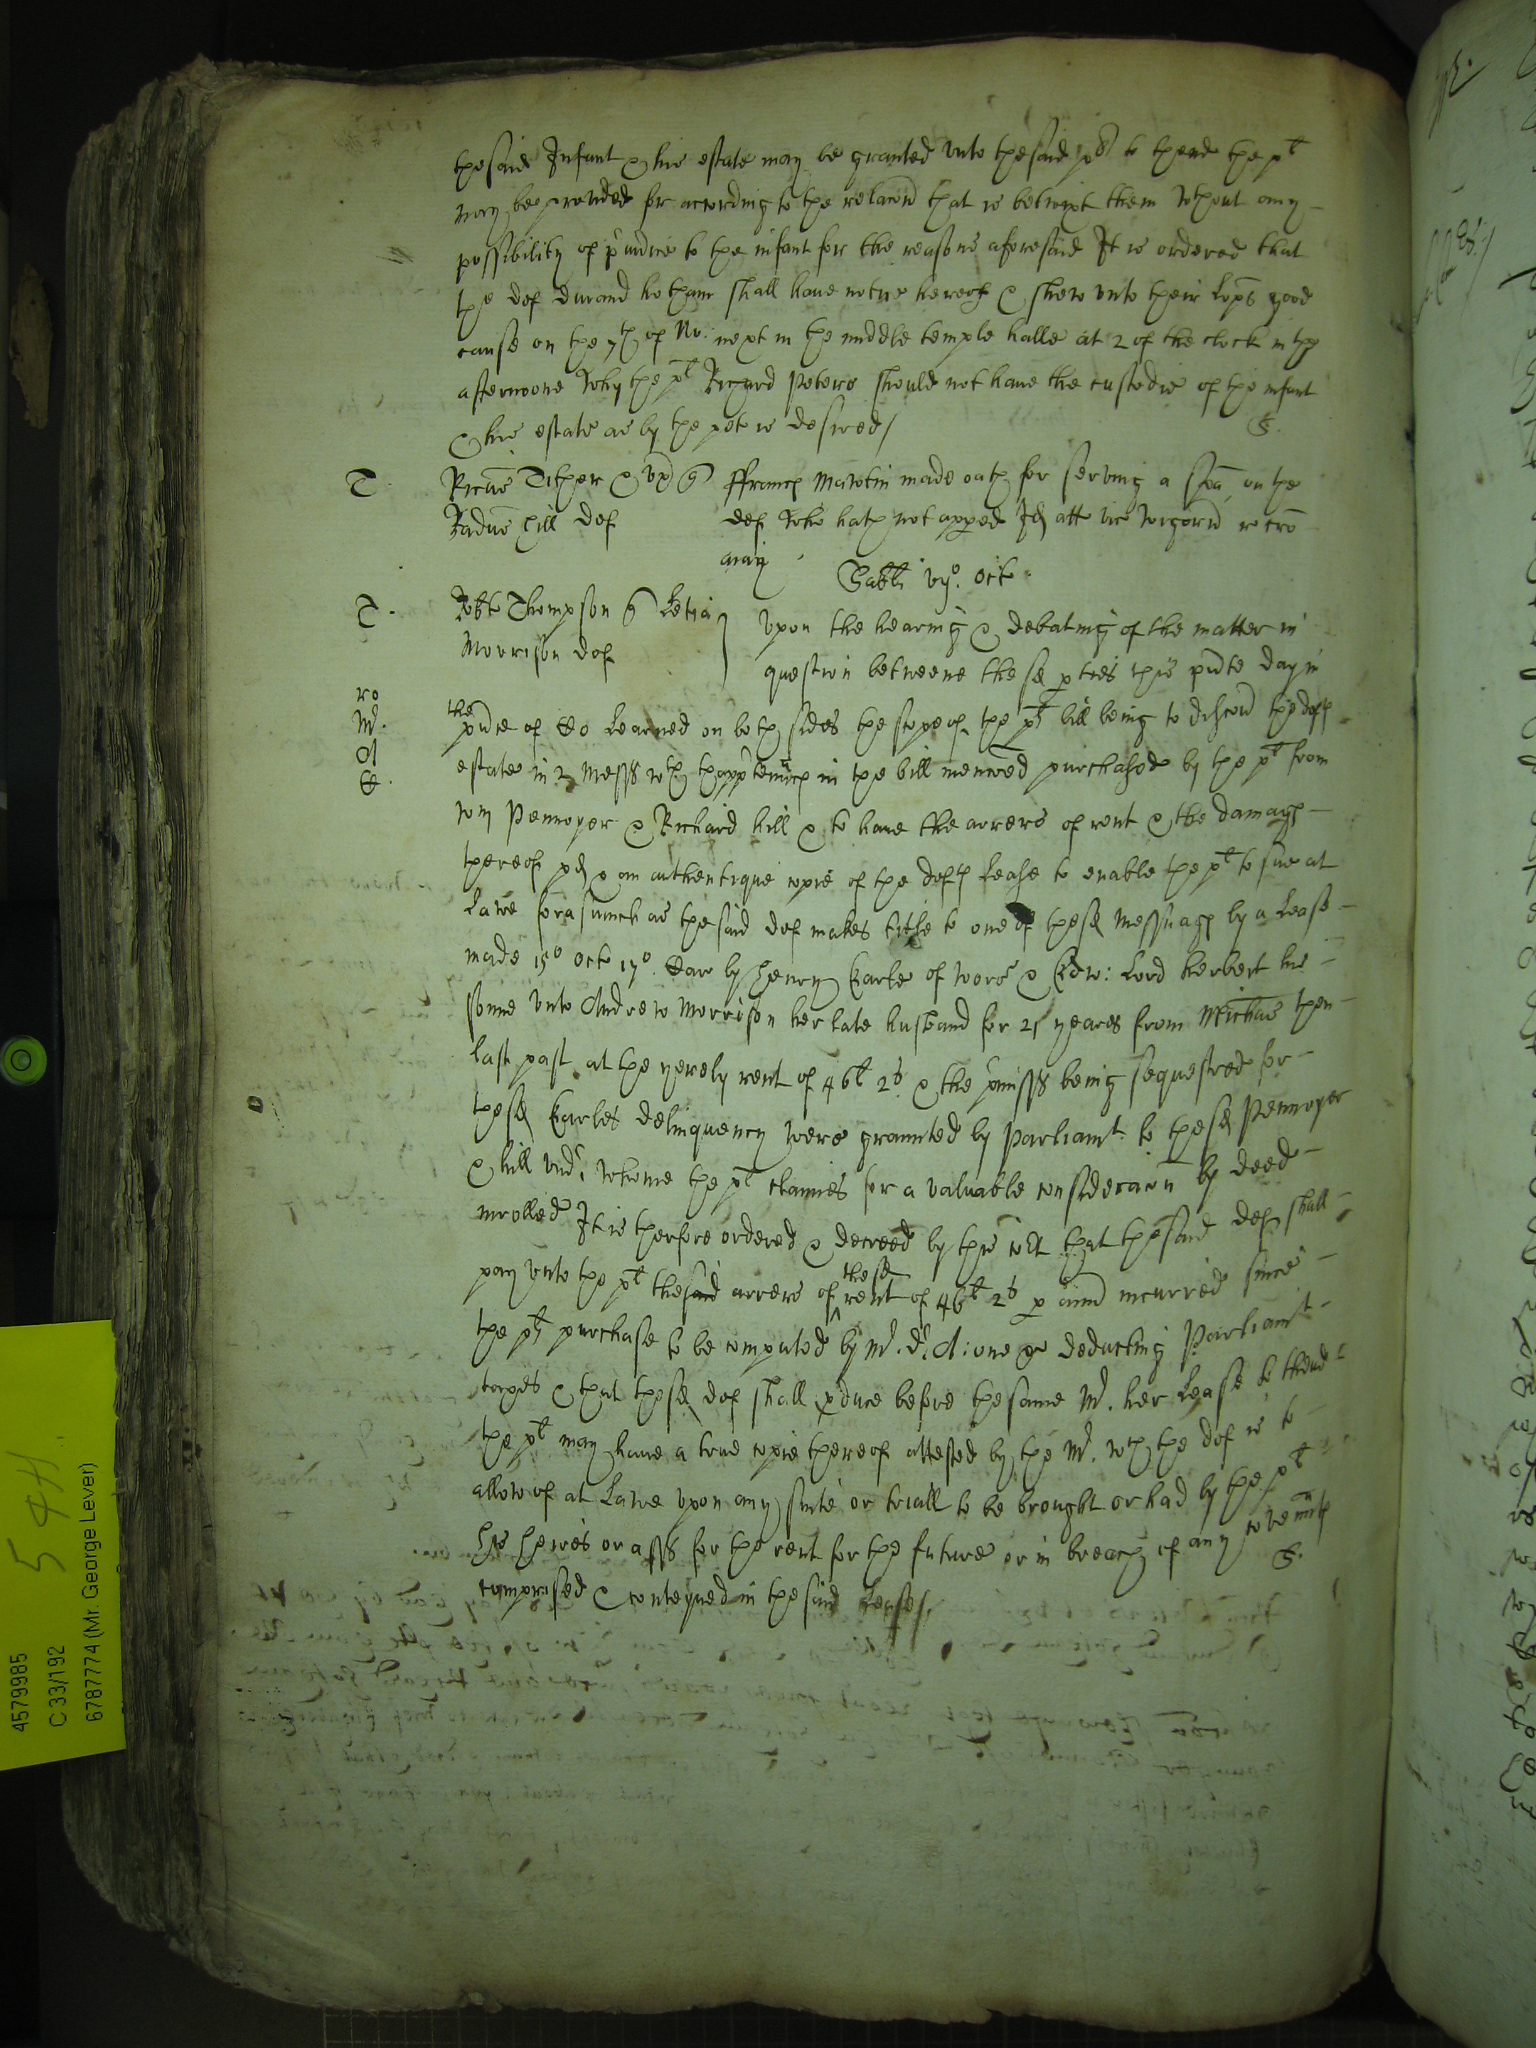 the said Infant & his estate may be granted unto the said pet to thend the plt
may be provided for according to the relacon that is betwixt them wthout any
possibility of p'iudice to the infant for the reasons aforesaid It is ordered that
the def Durand hotham shall have notice hereof & shew unto their Lopps good
cause on the 7th of No: next in the middle temple halle at 2 of the clock in the
afternoone Why the plt Richard Peters should not have the custodie of the infant
& his estate as by the pet is desired/
T
Ricus Tither & ux plt
Radus Hill def
ffrancs Martin made oath for serving a spa on the
def Who hath not appeed Id att vic Wigorn retro
aiar
Sabbti vjo. Octo
T.
Robte Thompson plt Letia
Morrison def
Upon the hearing & debating of the matter in
question betweene the sd pties this pnte day in
ro
Mr.
A
E.
the
pnce of Co Learned on both sides the scope of the plts bill being to discov the defts
estate in 2 Mess wth thapp'tenncs in the bill menconed purchased by the plt from
Wm Pennoyer & Richard hill & to have the arrers of rent & the damags
thereof pd & an authentique copie of the defts Lease to enable the plt to sue at
Lawe forasmuch as the said def makes title to one of these Messuags by a Lease
made 15o Octo 17o. Car by Henry Earle of Worc & Edw: Lord herbert his
sonne unto Andrew Morrison her late husband for 21 yeares from Michas then
last past at the yerely rent of 46l 2s & the p'miss being sequestred for
the sd Earles delinquency were graunted by Parliamt. to the sd Pennoyer
& hill und'. whome the plt claimes for a valuable consideracon by deed
inrolled It is therfore ordered & decreed by this Cot that the said def shall
pay unto the plt the said arrers of the sd rent of 46l 2s p ann incurred since
the plts purchase to be computed by Mr. dr. A: one &c deducting Parliamt
taxes & that the sd def shall pduce before the same Mr. her Lease to thend
the plt may have a true copie thereof attested by the Mr. wch the def is to
allow of at Lawe upon any suite or triall to be brought or had by the plt
his heires or ass for the rent for the future or in breach of any covennts
comprised & conteyned in the said Lease/
544
4579985
C 33/192
6787774 (Mr. George Lever)